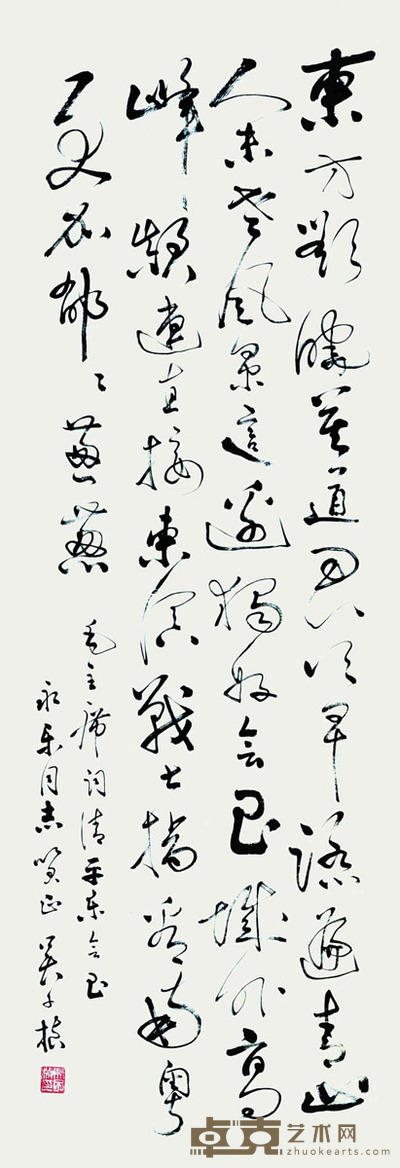 東方欲曉莫道君行早踏遍青山
人未老風景這邊獨好會昌城外高
峰顛連直接東溟戰士指看南粵
更加郁〻蔥蔥
毛主席词清平樂會昌
永乐同志笑正
卓克艺术网
zhuokearts.com